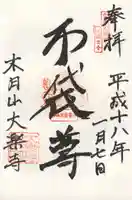 奉拝
平成十八年
一月七日
布袋尊
木月山大楽寺